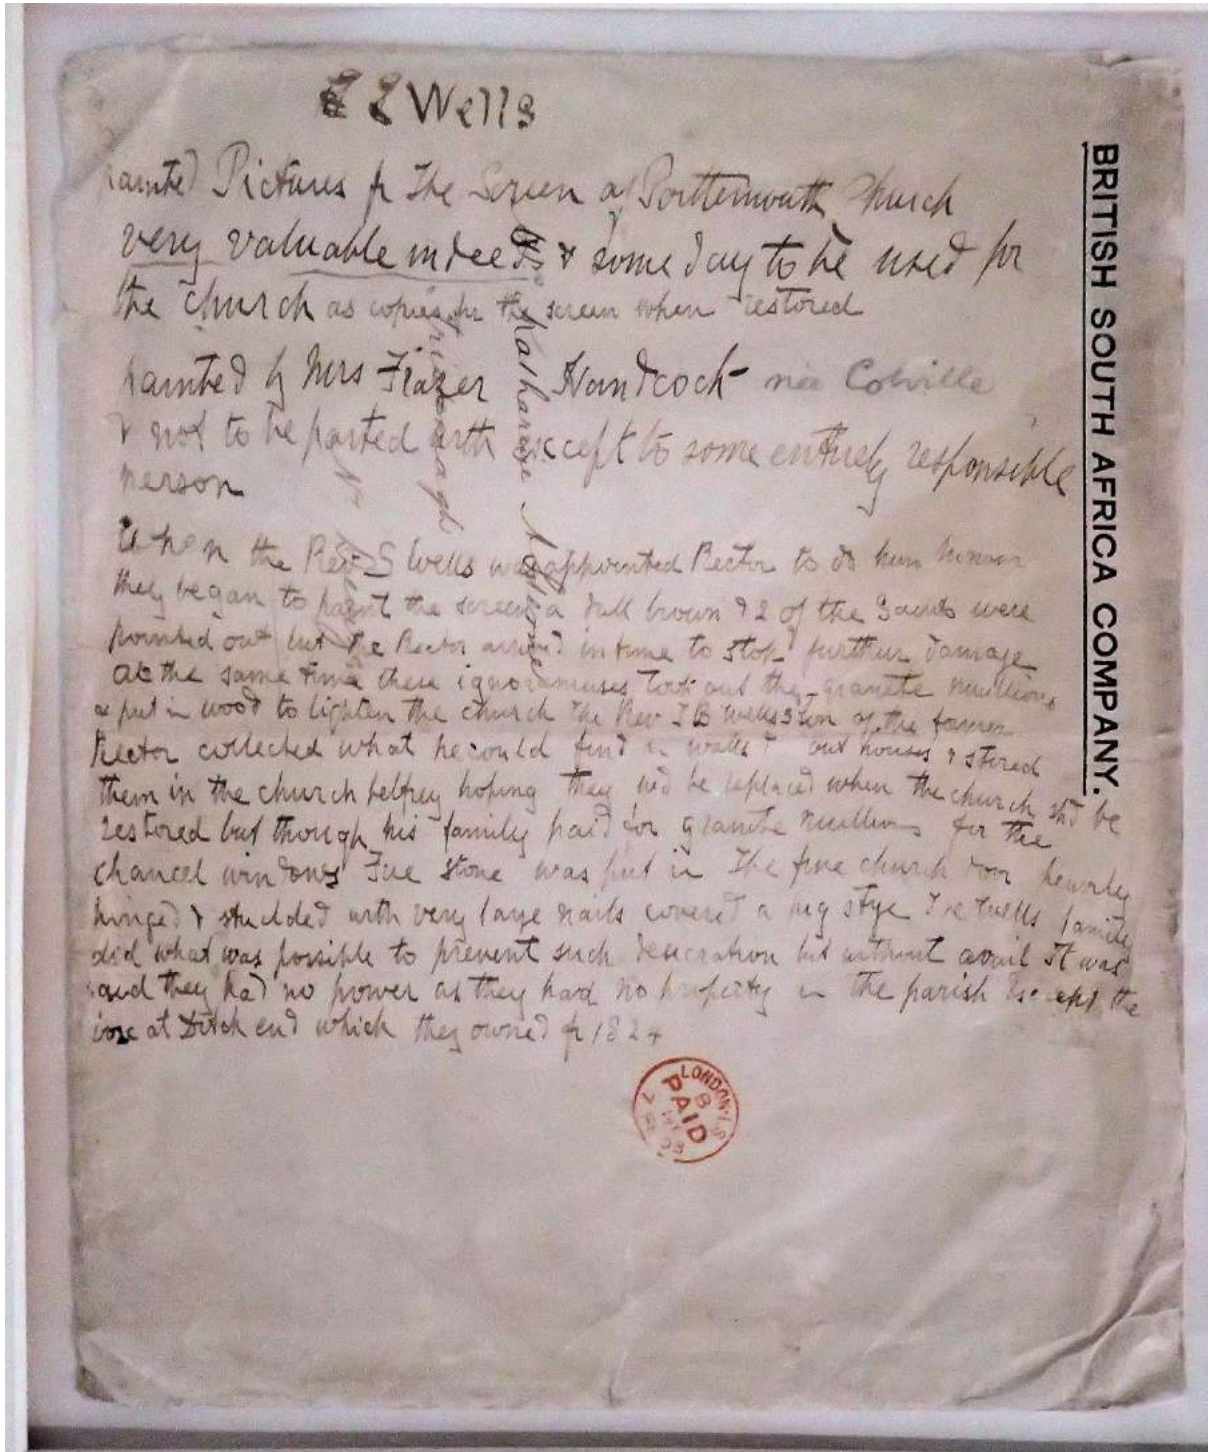 E L Wells
painted Pictures fr The Screen of Porttemouth Church
very valuable indeed & some day to be used for
the church as copies fr the screen when restored
painted by Mrs Frazer Handcock née Colville
& not to be parted with except to some entirely responsible
person
When the Rev S Wells was appointed Rector to do him honour
they began to paint the screen a dull brown & 2 of the Saints were
painted out but the Rector arrived in time to stop further damage
At the same time these ignoramuses took out the granite mullions
& put in wood to lighten the church The Rev J B Wells son of the former
Rector collected what he could find in walls & out houses & stored
them in the church belfrey hoping they wd be replaced when the church shd be
restored but though his family paid for granite mullions for the
chancel windows stone was put in The fine church door heavily
hinged & studded with very large nails covered a pig stye The Wells family
did what was possible to prevent such desecration but without avail It was
said they had no power as they had no property in the parish Except the
at Ditch end which they owned fr 1824
Katharine
BRITISH SOUTH AFRICA COMPANY.
LONDON
PAID